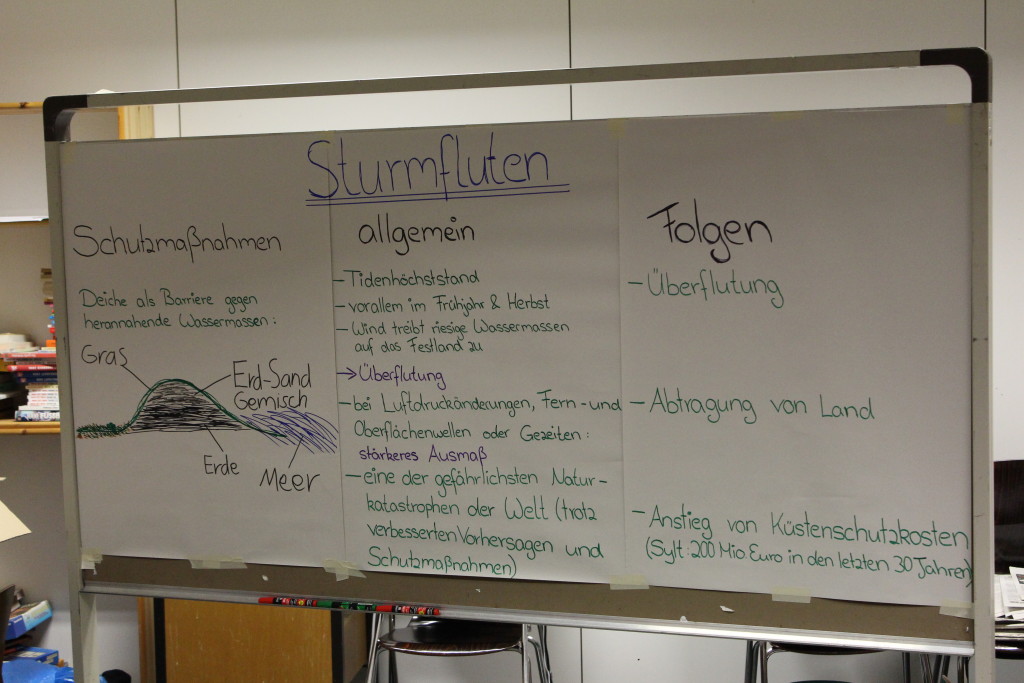 Sturmfluten
Schutzmaßnahmen
Deiche als Barriere gegen
herannahende Wassermassen:
Gras
Erd-Sand
Gemisch
Erde
Meer
allgemein
-Tidenhöchststand
-vorallem im Frühjahr & Herbst
-Wind treibt riesige Wassermassen
auf das Festland zu
→Überflutung
-bei Luftdruckänderungen, Fern-und
Oberflächenwellen oder Gezeiten:
stärkeres Ausmaß
-eine der gefährlichsten Natur-
katastrophen der Welt (trotz
verbesserten Vorhersagen und
Schutzmaßnahmen)
Folgen
-Überflutung
-Abtragung von Land
-Anstieg von Küstenschutzkosten
(Sylt: 200 Mio. Euro in den letzten 30 Jahren)